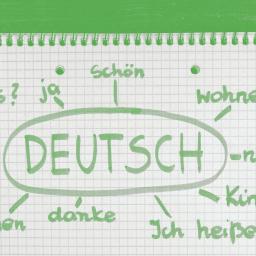 schön
s? ja
wohne
DEUTSCH
-n
Kin
en danke
Ich heiße